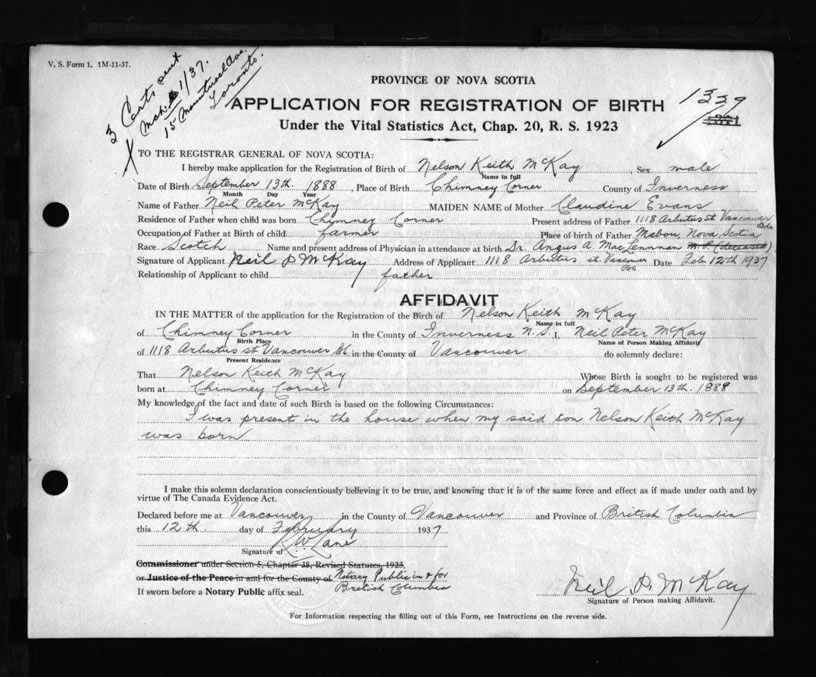 V. S. Form 1. 1M-11-37.
3 Certs sent
Mch. 1/37.
15 Montreal Ave.
Toronto.
PROVINCE OF NOVA SCOTIA
APPLICATION FOR REGISTRATION OF BIRTH
1339
Under the Vital Statistics Act, Chap. 20, R. S. 1923
TO THE REGISTRAR GENERAL OF NOVA SCOTIA:
I hereby make application for the Registration of Birth of Nelson Keith McKay, Sex male
Name in full
Date of Birth September 13th. 1888, Place of Birth Chimney Corner County of Inverness
Month Day Year
Name of Father Neil Peter McKay MAIDEN NAME of Mother Claudine Evans
Residence of Father when child was born Chimney Corner Present address of Father 1118 Arbutus st Vancouver
Occupation of Father at Birth of child farmer Place of birth of Father Mabou, Nova Scotia
Race Scotch Name and present address of Physician in attendance at birth Dr. Angus A. MacLennan
Signature of Applicant Neil P McKay Address of Applicant 1118 Arbutus st. Vancouver Date Feb. 12th 1937
Relationship of Applicant to child father
AFFIDAVIT
IN THE MATTER of the application for the Registration of the Birth of Nelson Keith McKay
Name in full
of Chimney Corner in the County of Inverness N.S. I, Neil Peter McKay
Birth Place Name of Person Making Affidavit
of 1118 Arbutus st Vancouver BC. in the County of Vancouver do solemnly declare:
Present Residence
That Nelson Keith McKay Whose Birth is sought to be registered was
born at Chimney Corner on September 13th. 1888
My knowledge of the fact and date of such Birth is based on the following Circumstances:
I was present in the house when my said son Nelson Keith McKay
was born
I make this solemn declaration conscientiously believing it to be true, and knowing that it is of the same force and effect as if made under oath and by
virtue of The Canada Evidence Act.
Declared before me at Vancouver in the County of Vancouver and Province of British Columbia
this 12th day of February 1937
Signature of R.W. Lane
Commissioner under Section 5, Chapter 38, Revised Statutes, 1923,
or Justice of the Peace in and for the County of Notary Public in & for
British Columbia
If sworn before a Notary Public affix seal.
Neil P McKay
Signature of Person making Affidavit.
For Information respecting the filling out of this Form, see Instructions on the reverse side.